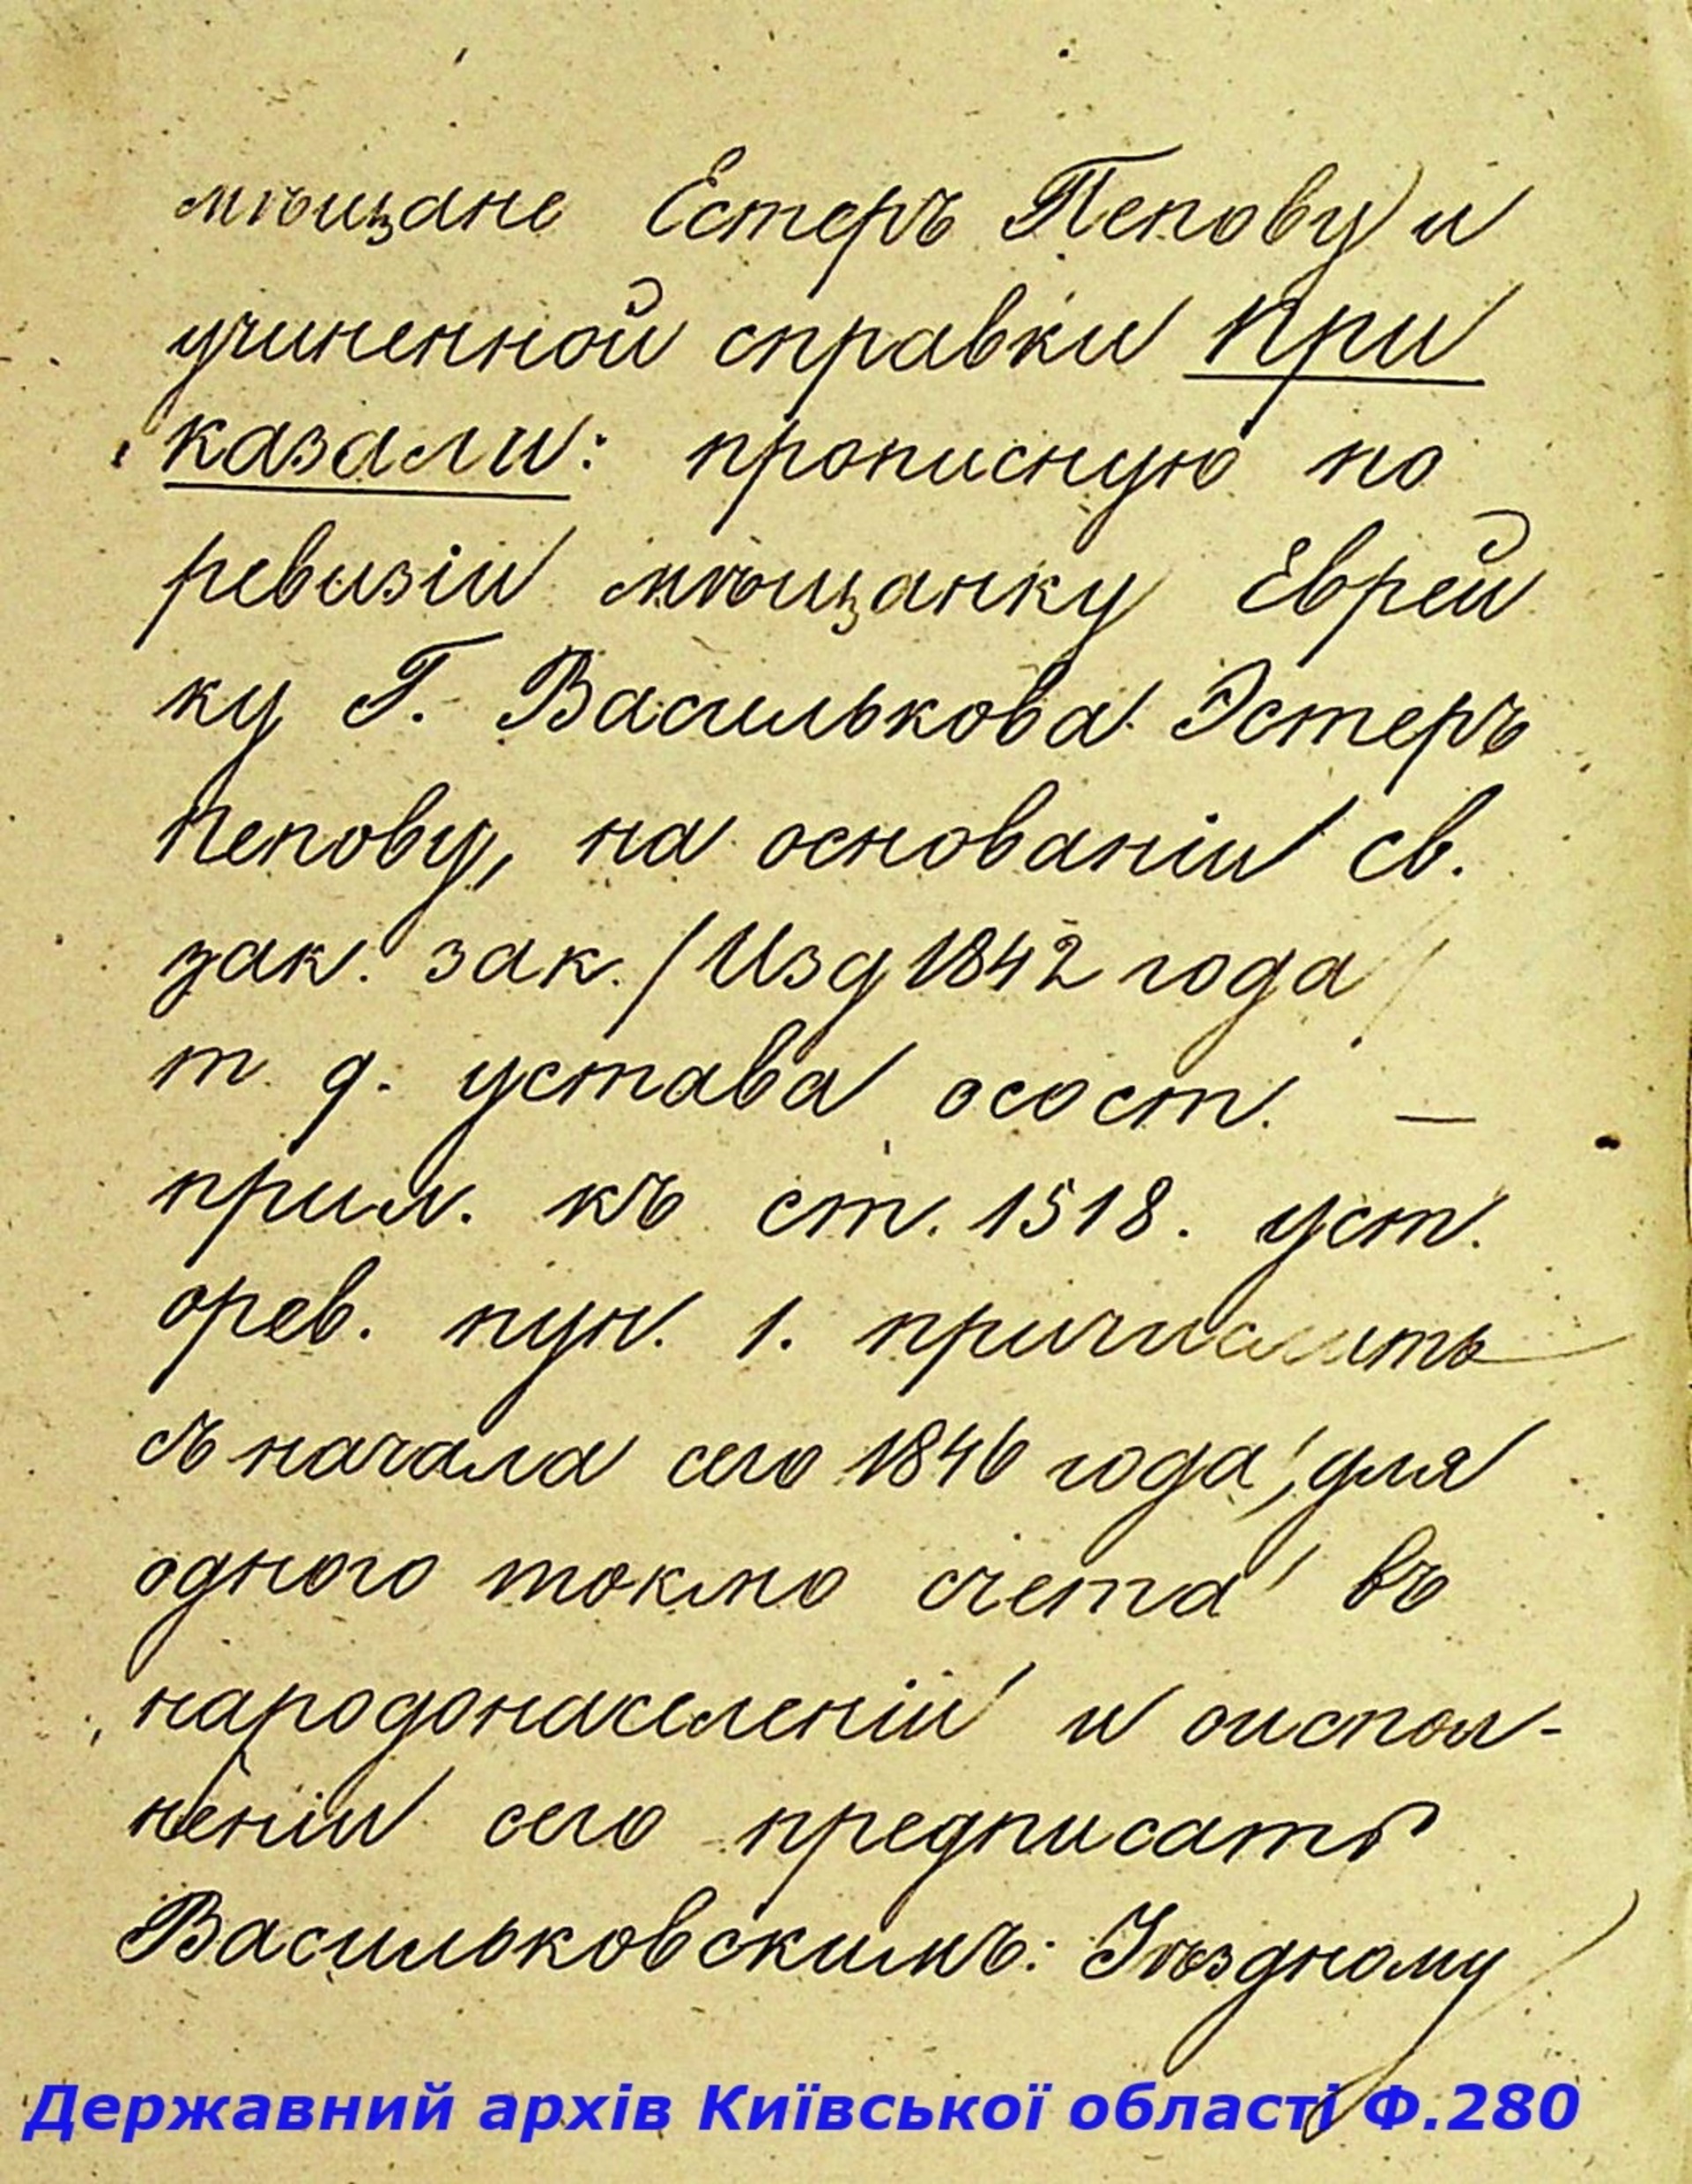 мѣщане Естеръ Пепову и
учиненной справки При
казали: прописную по
ревизіи мѣщанку Еврей
ку Г. Василькова Эстеръ
Пепову, на основаніи св.
зак. зак. / Изд 1842 года /
т. д. устава осост. —
прим. къ ст. 1518. уст.
орев. пун. 1. причислить
съ начала сего 1846 года, для
одного токмо счета въ
народонаселеніи и оиспол-
неніи сего предписать
Васильковскимъ: Уѣздному
Державний архів Київської області Ф.280